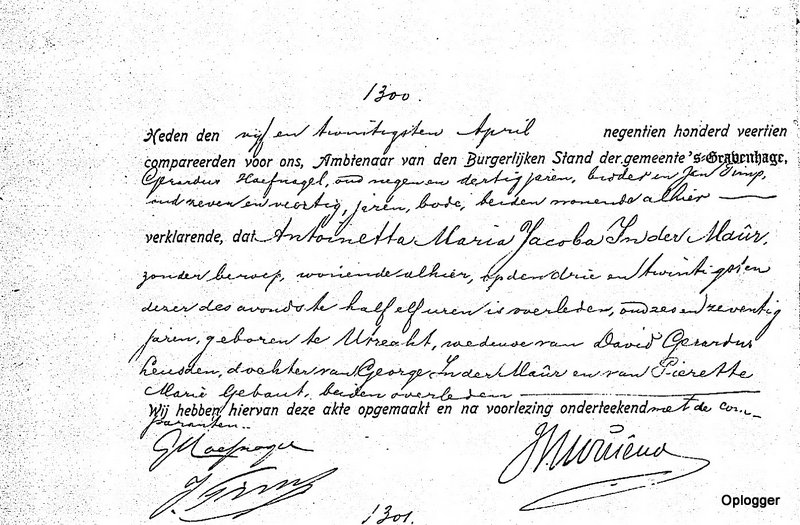 1300.
Heden den vijf en twintigsten April negentien honderd veertien
compareerden voor ons, Ambtenaar van den Burgerlijken Stand der gemeente 's-Gravenhage,
Gerardus Hoefnagel, oud negen en dertig jaren, bode en Jan Gimp,
oud zeven en veertig, jaren, bode, beiden wonende alhier
verklarende, dat Antoinetta Maria Jacoba In der Maûr,
zonder beroep, wonende alhier, op den drie en twintigsten
dezer des avonds te half elf uren is overleden, oud zes en zeventig
jaren, geboren te Utrecht, weduwe van David Gerardus
Heusden, dochter van George In der Maûr en van Pierette
Marie Gebaut, beiden overleden
Wij hebben hiervan deze akte opgemaakt en na voorlezing onderteekend met de com-
paranten.
GHoefnagel
1301.
Oplogger